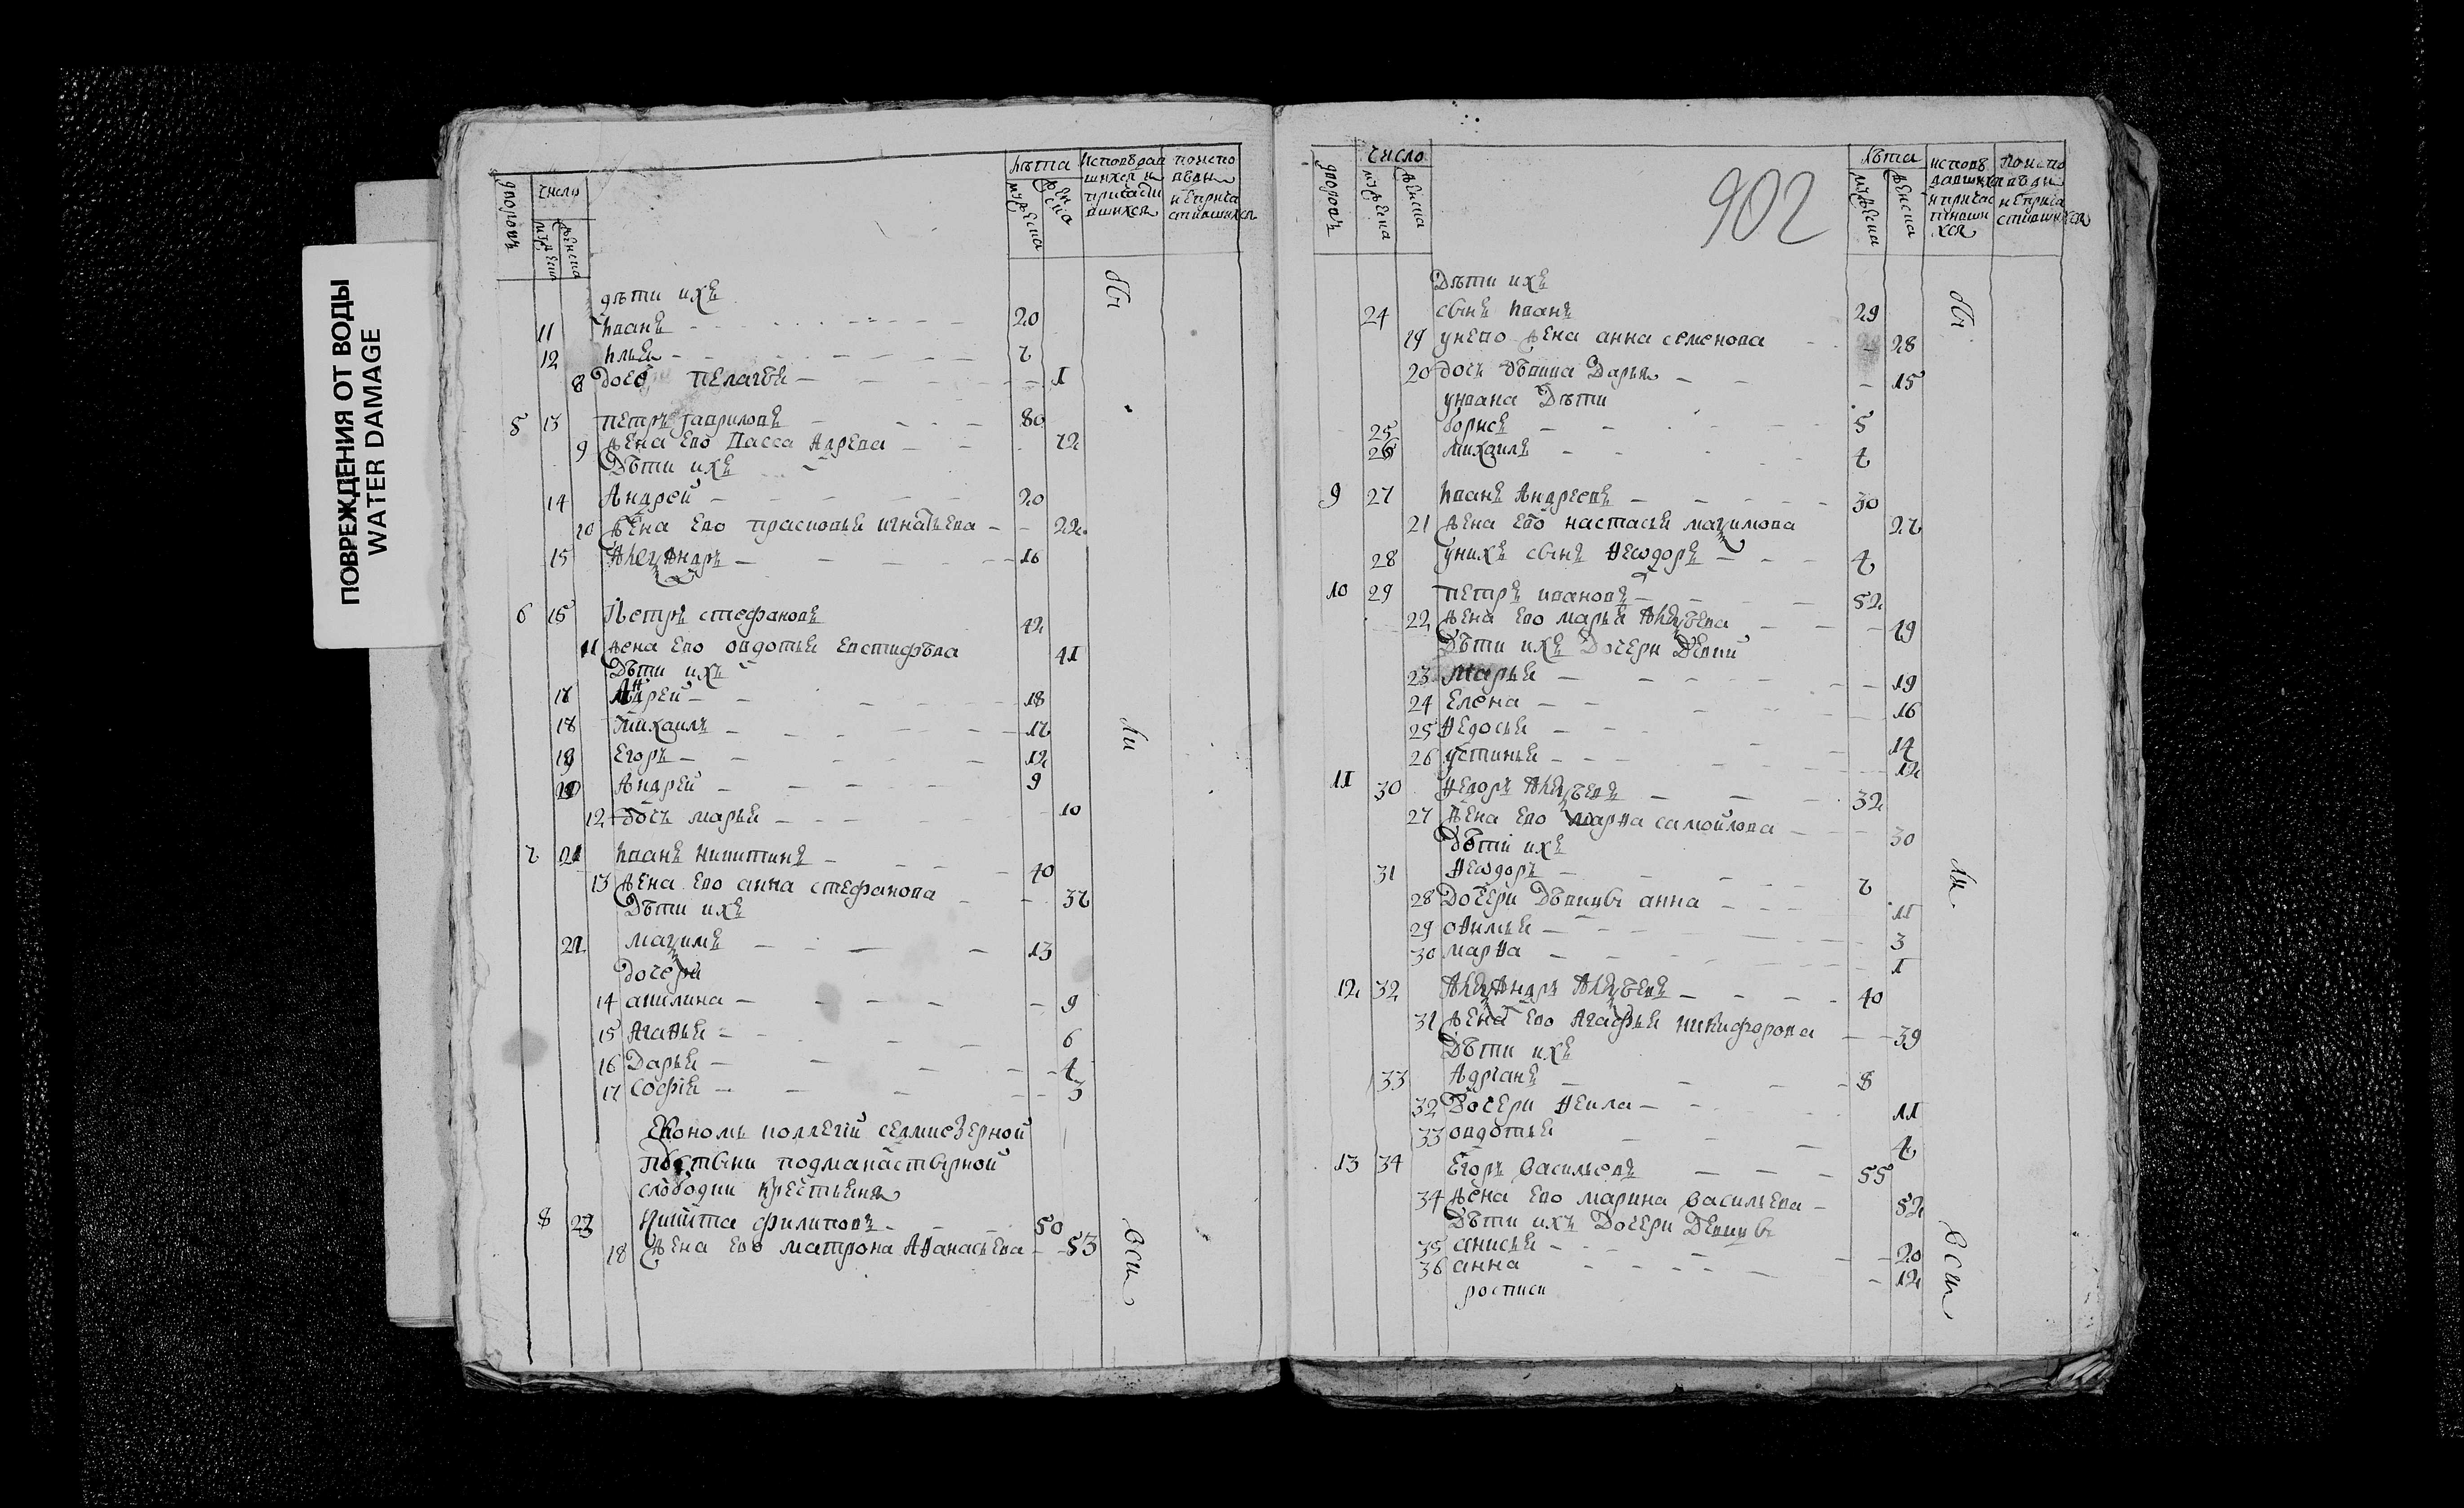 ПОВРЕЖДЕНИЯ ОТ ВОДЫ
WATER DAMAGE
дворовъ
число
мужеска
женска
лѣта
мужеска
женска
исповѣдав
шихся и
причасти
вшихся
по испо
вѣди
и неприча
стившихся
дѣти ихъ
бы
11 Иванъ 20
12 Илья 7
8 дочь Пелагѣя 1
5 13 Петръ Гавриловъ 80
9 жена ево Васса 72
Дѣти ихъ
14 Андрей 20
10 жена ево прасковья игнатьева 22
15 Алеѯандръ 16
6 15 Петръ стефановъ 42
11 жена ево овдотья 41
Дѣти ихъ
17 Андрей 18
18 Михаилъ 17
ли
19 Егоръ 12
20 Андрей 9
12 дочь марья 10
7 21 Иванъ Никитинъ 40
13 жена ево анна стефанова 37
Дѣти ихъ
22 маѯимъ 13
дочери
14 акилина 9
15 Агафья 6
16 Дарья 4
17 софія 3
Економъ коллегіи седмиезерной
пустыни подманастырной
слободки крестьяня
8 23 Никита филиповъ 50
18 жена ево матрона Афанасьева 53
вси
902
дворовъ
число
мужеска
женска
лѣта
мужеска
женска
исповѣ
давшихся
и причас
тивши
хся
по испо
вѣди
и неприча
стившихся
Дѣти ихъ
бы
24 сынъ Иванъ 29
19 унево жена анна семенова 28
20 дочь дѣвица Дарья 15
уивана Дѣти
25 борисъ 5
26 михаилъ 4
9 27 Иванъ Андреевъ 30
21 жена ево настасья маѯимова 27
28 унихъ сынъ Феодоръ 4
10 29 петръ ивановъ 52
22 жена ево марья Алеѯѣева 49
Дѣти ихъ Дочери Девки
23 марья 19
24 Елена 16
25 Федосья 14
26 устинья 12
11 30 Федоръ Алеѯѣевъ 32
27 жена ево марфа самойлова 30
Дѣти ихъ
31 Феодоръ 7
ли
28 Дочери Дѣвицы анна 11
29 офимья 3
30 марфа 1
12 32 Алеѯандръ Алеѯѣевъ 40
31 жена ево Агафья никифорова 39
Дѣти ихъ
33 Адріанъ 8
32 Дочери Фекла 11
33 овдотья 4
13 34 Егоръ васильевъ 55
34 жена ево марина васильева 52
Дѣти ихъ Дочери Девицы
35 анисья 20
36 анна 12
вси
росписи